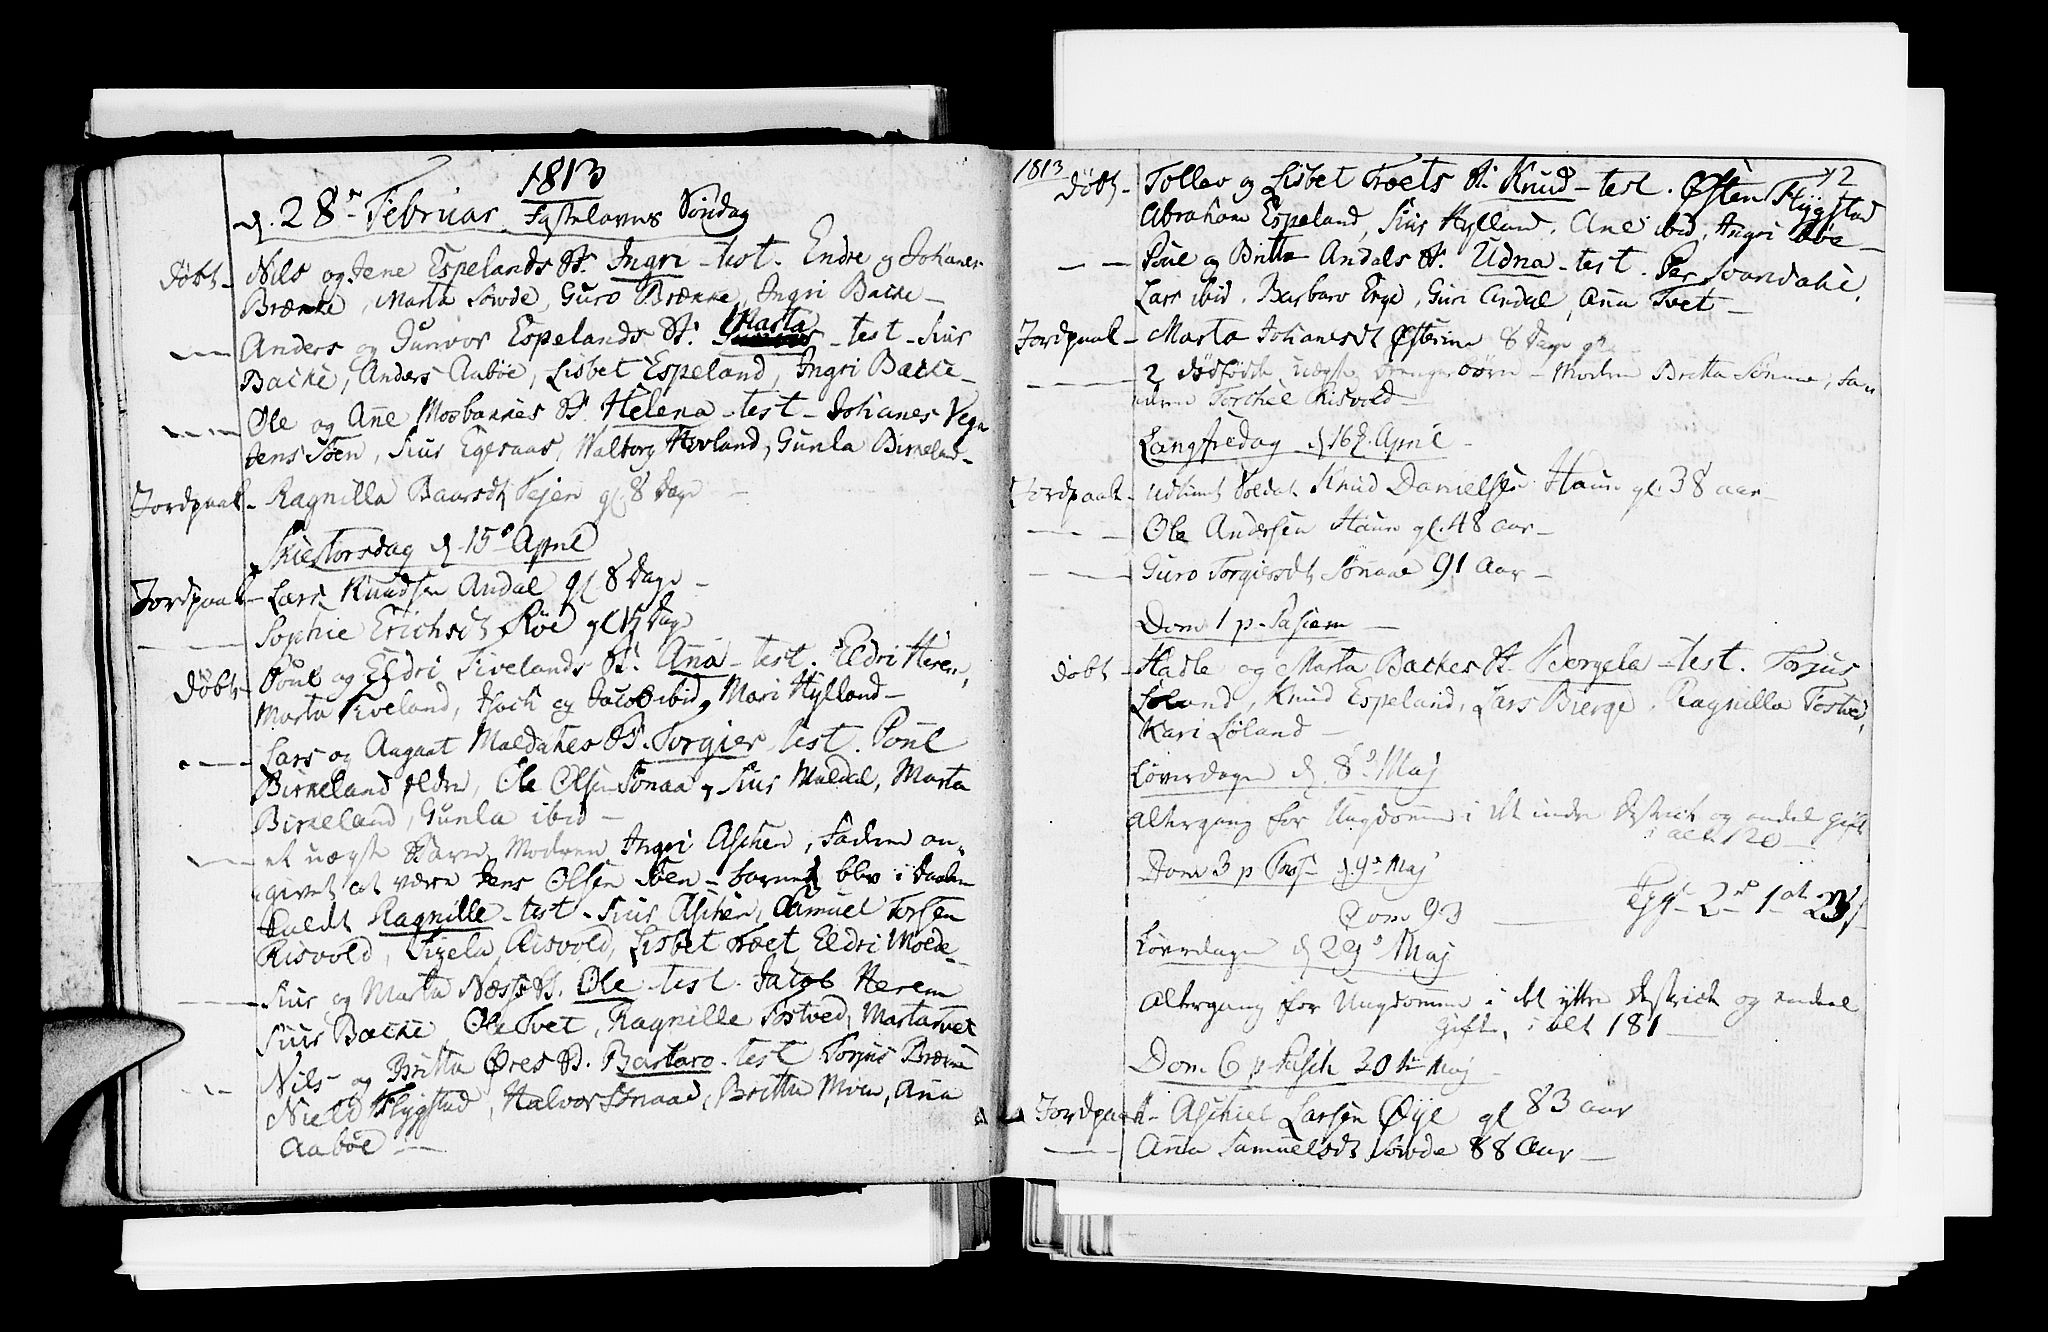 1813
d. 28de Februar. Fastelavns Søndag
Døbt- Nils og Jene Espelands B. Ingri - test. Endre g Johanes
Brække, Marta Sowde, Guro Brække, Ingri Backe-
---- Anders og Gunvor Espelands B. Marta - test - Sius
Backe, Anders Aabøe, Lisbet Espeland, Ingri Backe-
---- Ole og Ane Mosbakkes B. Helena - test - Johanes Vega
Jens Søen, Sius Egeraas, Walborg Hovland, Gunla Birkeland-
Jordpaak- Ragnilla Baarsdt Tejen gl. 8 Dage -
Skiertorsdag d. 15de April
Jordpaak- Lars Knudsen Andal gl 8 Dage -
---- Sophie Erichsdt Røe gl Dage
Døbt- Poul og Eldri Tivelands B. Ana - test. Eldri Herem,
Marta Tiveland, Isach og Jacob ibid, Mari Hylland-
---- Lars og Aagaat Maldakes B. Torgier test. Poul
Birkeland Eldre, Ole Olsen Sønaa, Sius Maldal, Marta
Birkeland, Gunla ibid -
---- et uægte Barn, Modren Ingri Aschen, Fadren an-
givet at være Jens Olsen Søen - barnet blev i Daaben
kaldt Ragnille - test - Sius Aschen, Samuel Torsen
Risvold, Sizela Risvold, Lisbet Træt Eldri Molde-
---- Sius og Marta Næss B. Ole - test. Jacob Herem
Sius Backe Ole Tvet, Ragnille Tostved, Marta Tvet
-- Nils og Britta Øres B. Barbaro - test Torjus Brække
Flygstad, Halvor Sønaae, Britta Moen, Ana
Aabøe ---
1813 42
Døbt- Tollev og Lisbet Træts B. Knud - test. Østen Flygstad
Abraham Espeland, Sius Hylland, Ane ibid, Ingri Bøe-
-- Poul og Britta Andals B. Udna - test. Per Svandahl,
Lars ibid. Barbaro Erge, Guri Andal, Ana Tvet -
Jordpaak- Marta Johanesdt Østreim 8 Dage gl
---- 2 dødfødte uægte Drengebørn - Modren Britta Sønnaa, Fad
deren Torchel Risvold -
Langfredag d 16de April -
Jordpaak- udtient Soldat Knud Danielsen Haue gl. 38 aar-
---- Ole Andersen Haue gl. 48 aar -
---- Guro Torgiersdt Sønaae 91 Aar -
Dom 1 p. Pasiem -
døbt- Hadle og Marta Backes B. Bergela - test. Torjus
Løland, Knud Espeland, Lars Bierge, Ragnilla Tostved,
Kari Løland -
Løverdagen d. 8de Maj
Altergang for Ungdommen i det indre District og endel Gifte
i alt 120 -
Dom 3 p Pasc d. 9de Maj
Com 93
Løverdagen d 29de Maj
Altergang for Ungdommen i det yttre District og endeel
Gifte, i alt 181 -
Dom 6 p Pasch 30te Maj -
Jordpaak- Aschiel Larsen Øye gl 83 aar
---- Anna Samuelsdt Sowde 88 Aar -